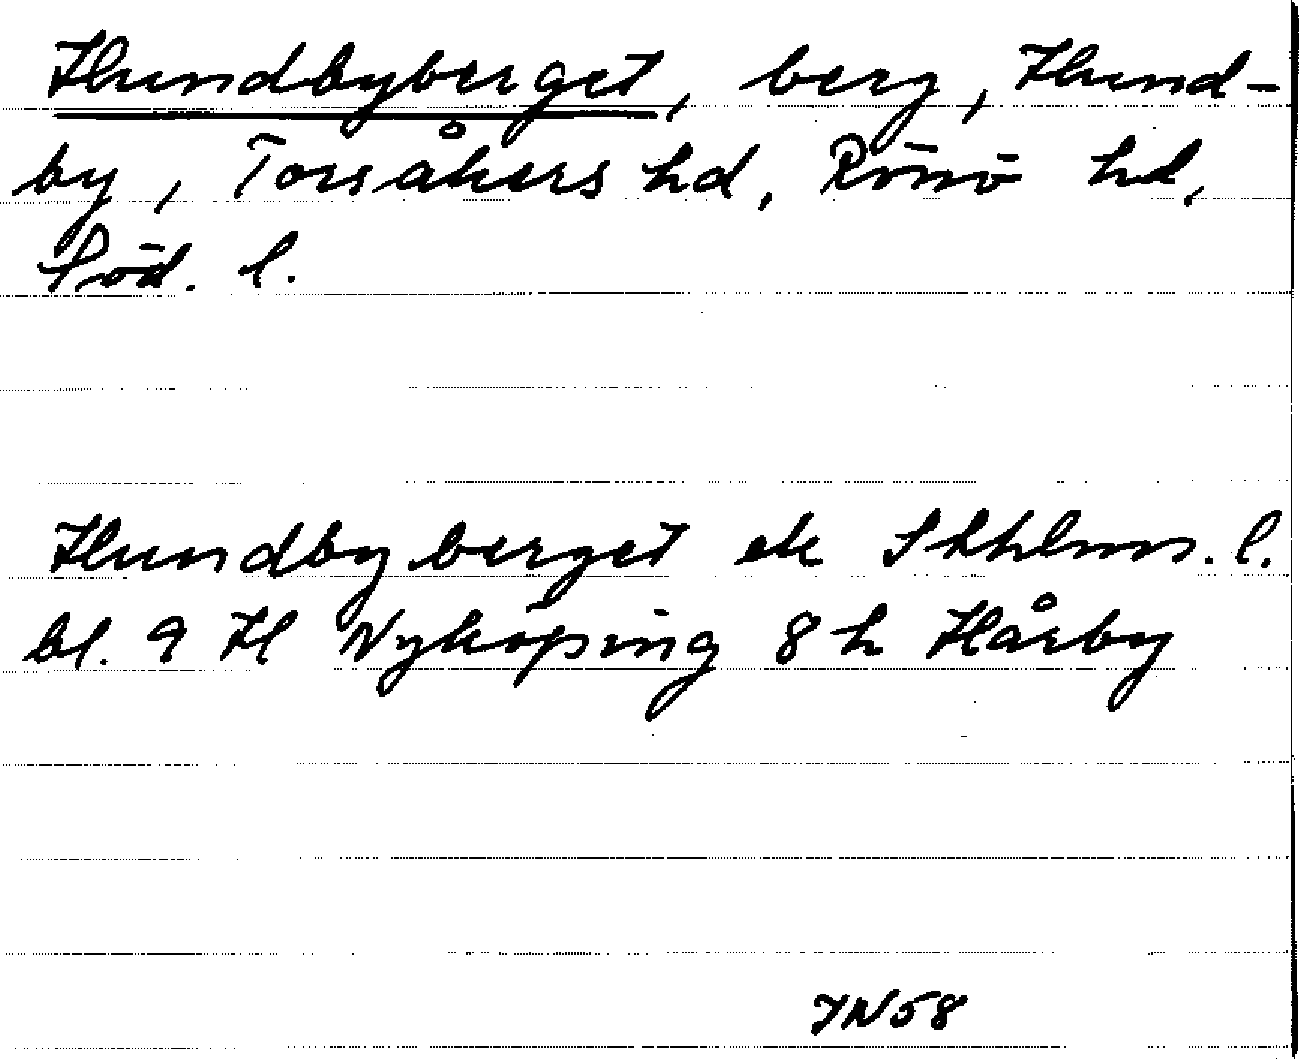 Hundbyberget, berg, Hund-
by, Torsåkers hd, Rönö hd,
Söd. l.
Hundbyberget ek Shhlms. l.
bl. 9 H Nyköping 8 h Hårby
JN58